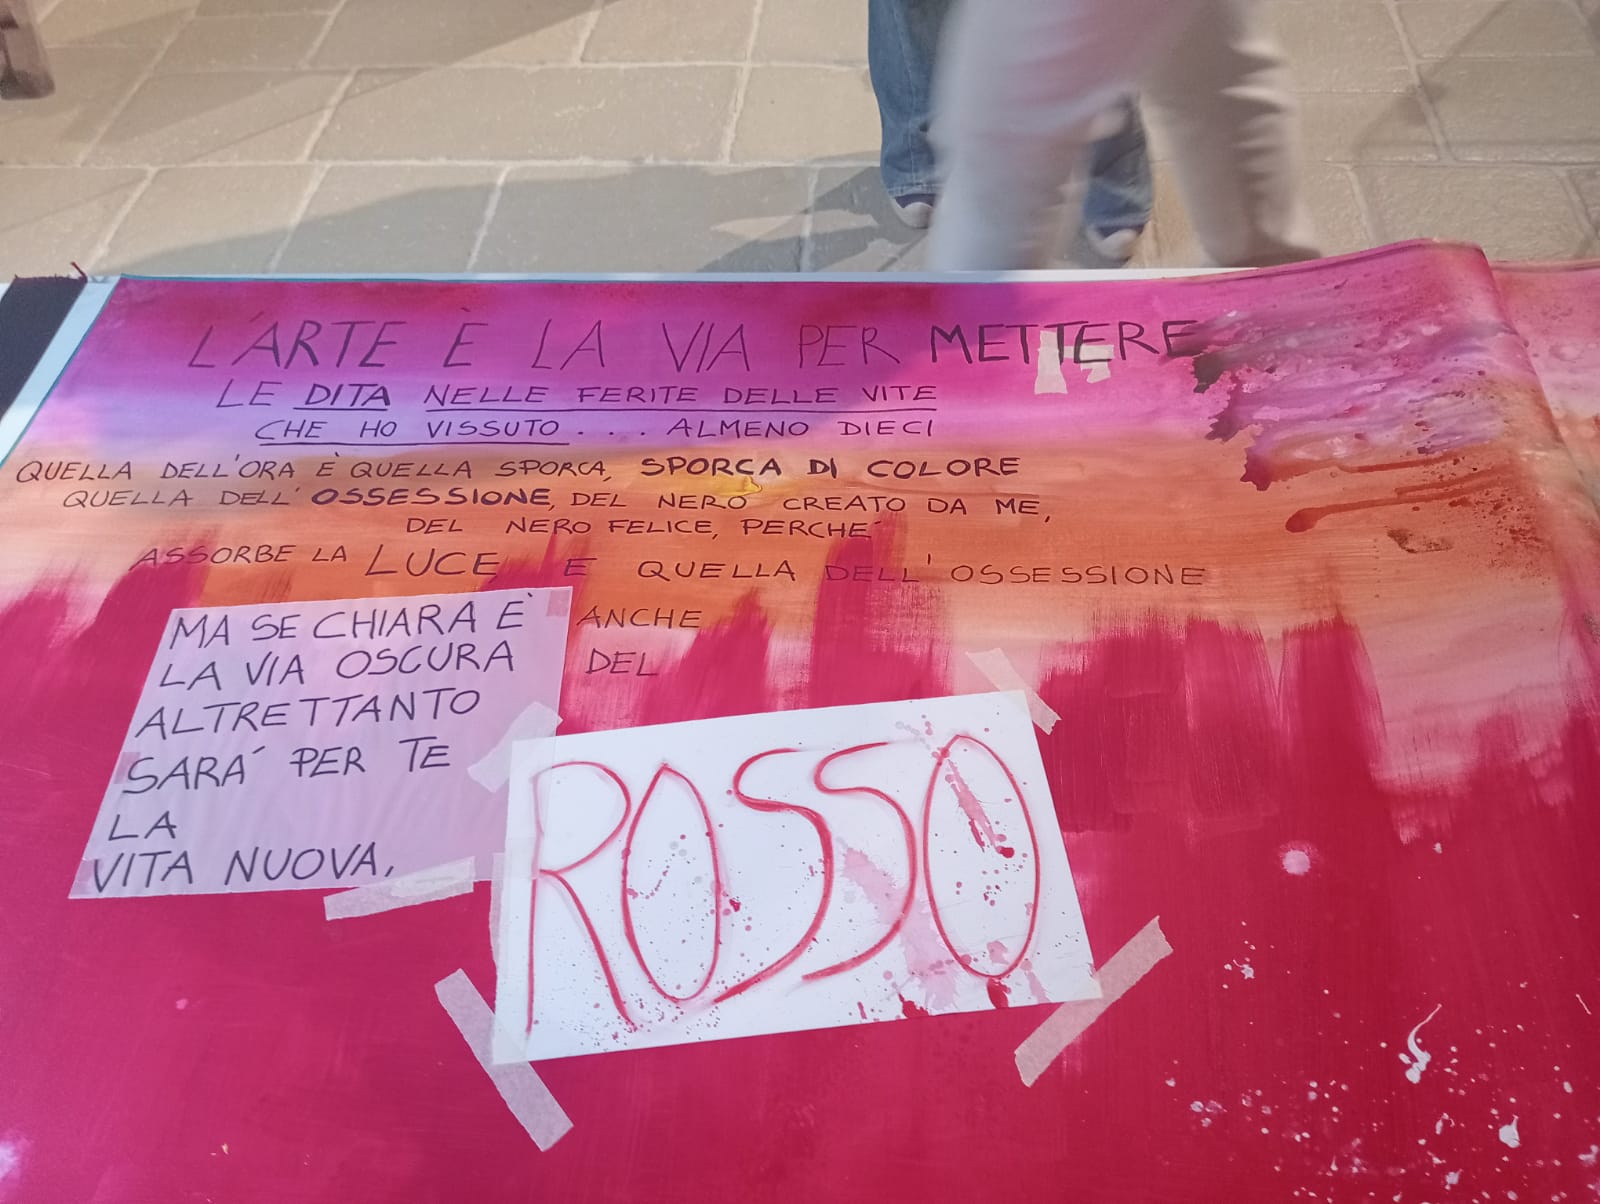 L'ARTE È LA VIA PER METTERE
LE DITA NELLE FERITE DELLE VITE
CHE HO VISSUTO . . . ALMENO DIECI
QUELLA DELL'ORA È QUELLA SPORCA, SPORCA DI COLORE
QUELLA DELL'OSSESSIONE, DEL NERO CREATO DA ME,
DEL NERO FELICE, PERCHE´
ASSORBE LA LUCE E QUELLA DELL'OSSESSIONE
ANCHE
DEL
ROSSO
MA SE CHIARA È
LA VIA OSCURA
ALTRETTANTO
SARA´ PER TE
LA
VITA NUOVA,